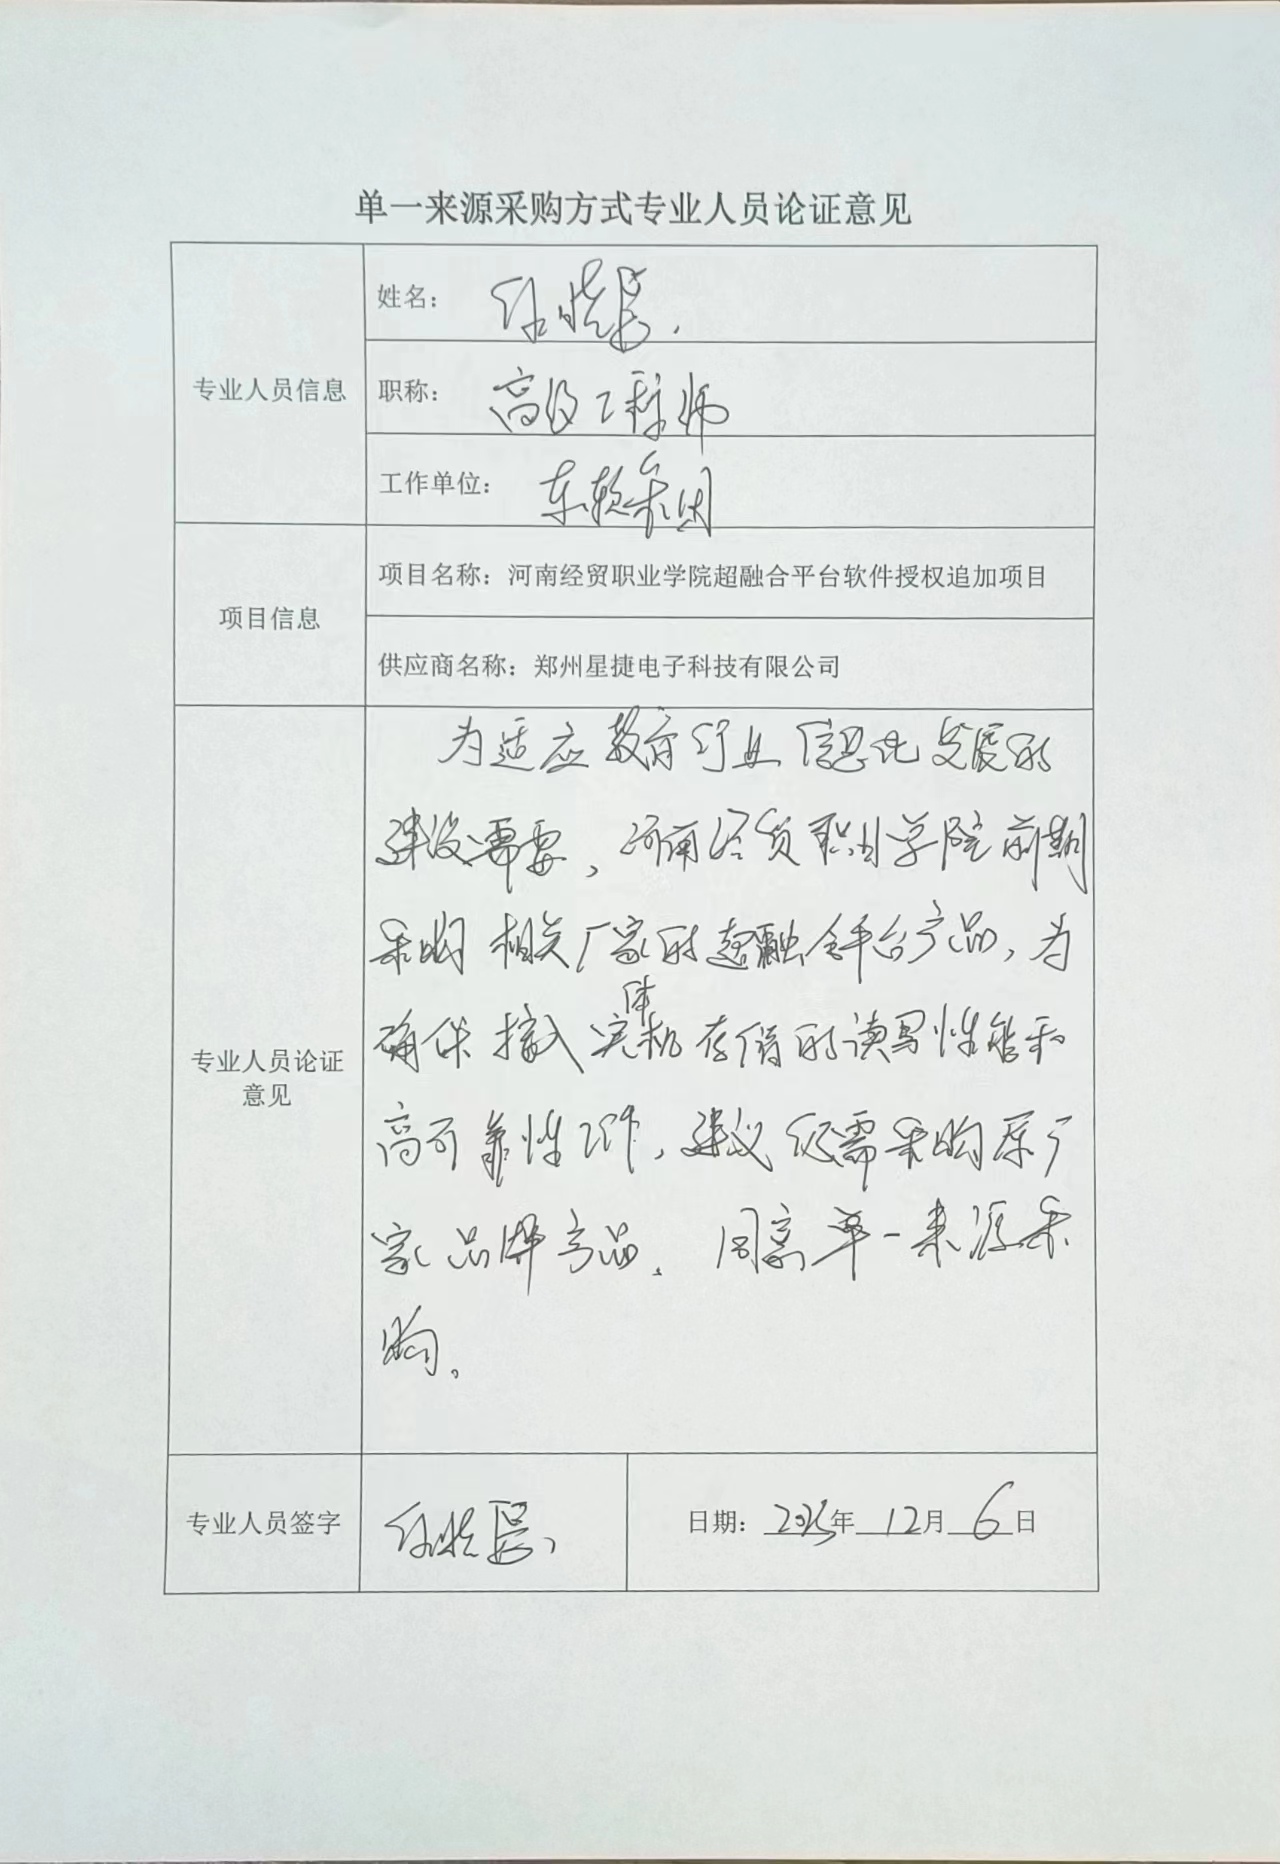 单一来源采购方式专业人员论证意见
专业人员信息
姓名：任晓
职称：高级工程师
工作单位：东软集团
项目信息
项目名称：河南经贸职业学院超融合平台软件授权追加项目
供应商名称：郑州星捷电子科技有限公司
专业人员论证
意见
为适应教育行业信息化发展的
建设需要，河南经贸职业学院前期
采购相关厂家的超融合平台产品，为
确保接入完体机存储的读写性能和
高可靠性工作，建议仍需采购原厂
家品牌产品。同意单一来源采
购。
专业人员签字
任晓
日期：2025年12月6日